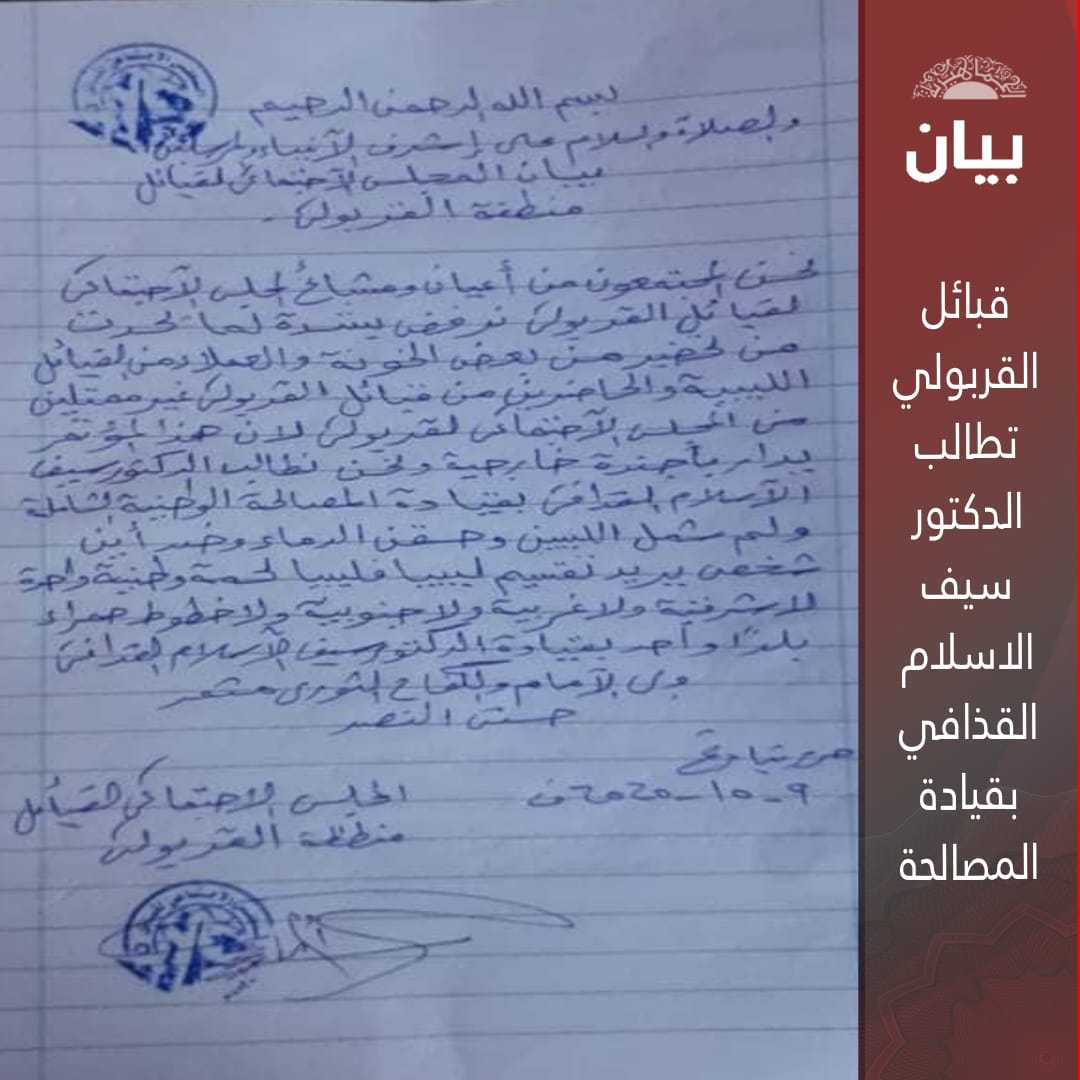 بسم الله الرحمن الرحيم
والصلاة والسلام على إشرف الآنبياء والمرسلين
بيان المجلس الآجتماعي لقبائل
منطقة القربولي
نحن المجتمعون من أعيان ومشائخ المجلس الآجتماعي
لقبائل القربولي نرفض بشدة لما تحدث
من تحضير من بعض الخونة والعملاء من القبائل
الليبية والحاضرين من قبائل القربولي غير ممثلين
من المجلس الآجتماعي لقربولي لان هذا المؤتمر
يدار بأجندة خارجية ونحن نطالب الدكتور سيف
الآسلام القذافي بقيادة المصالحة الوطنية الشاملة
ولم شمل الليبين وحقن الدماء وضد أين
شخص يريد تقسيم ليبيا فليبيا لحمة وطنية واحدة
لاشرقية ولاغربية ولاجنوبية ولاخطوط حمراء
بلدًا واحد بقيادة الدكتور سيف الآسلام القذافي
وى الآمام والكفاح الثورى مستمر
حتى النصر
بتاريخ
9-10-2020ف
المجلس الاجتماعي القبائل
منطقة القربولي
الجماهيرية
بيان
قبائل
القربولي
تطالب
الدكتور
سيف
الاسلام
القذافي
بقيادة
المصالحة